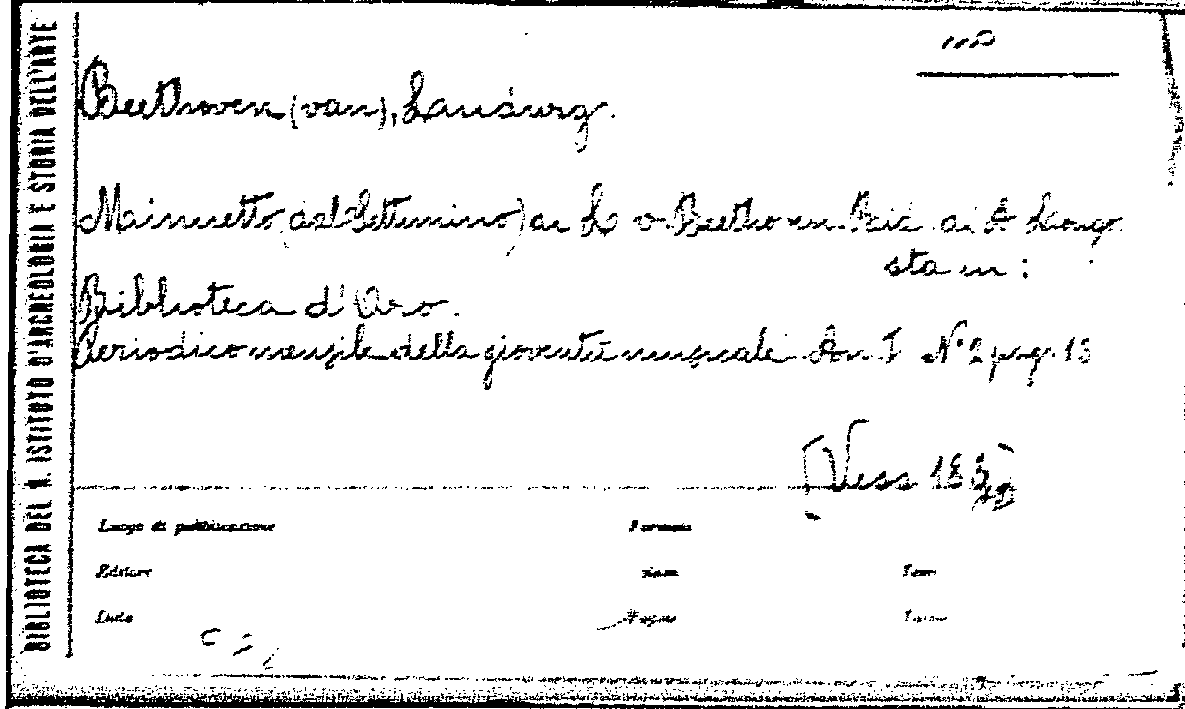 BIBLIOTECA DEL R. ISTITUTO D'ARCHEOLOGIA E STORIA DELL'ARTE
Beethoven (van), Ludwig.
Minuetto (dal Settimino) di L. v. Beethoven. Rid. di A. Longo
sta in :
Biblioteca d'Oro.
Periodico mensile della gioventù musicale An. I N° 2 pag. 13
[Vess
Luogo di pubblicazione
Formato
Editore
Data
Pagine